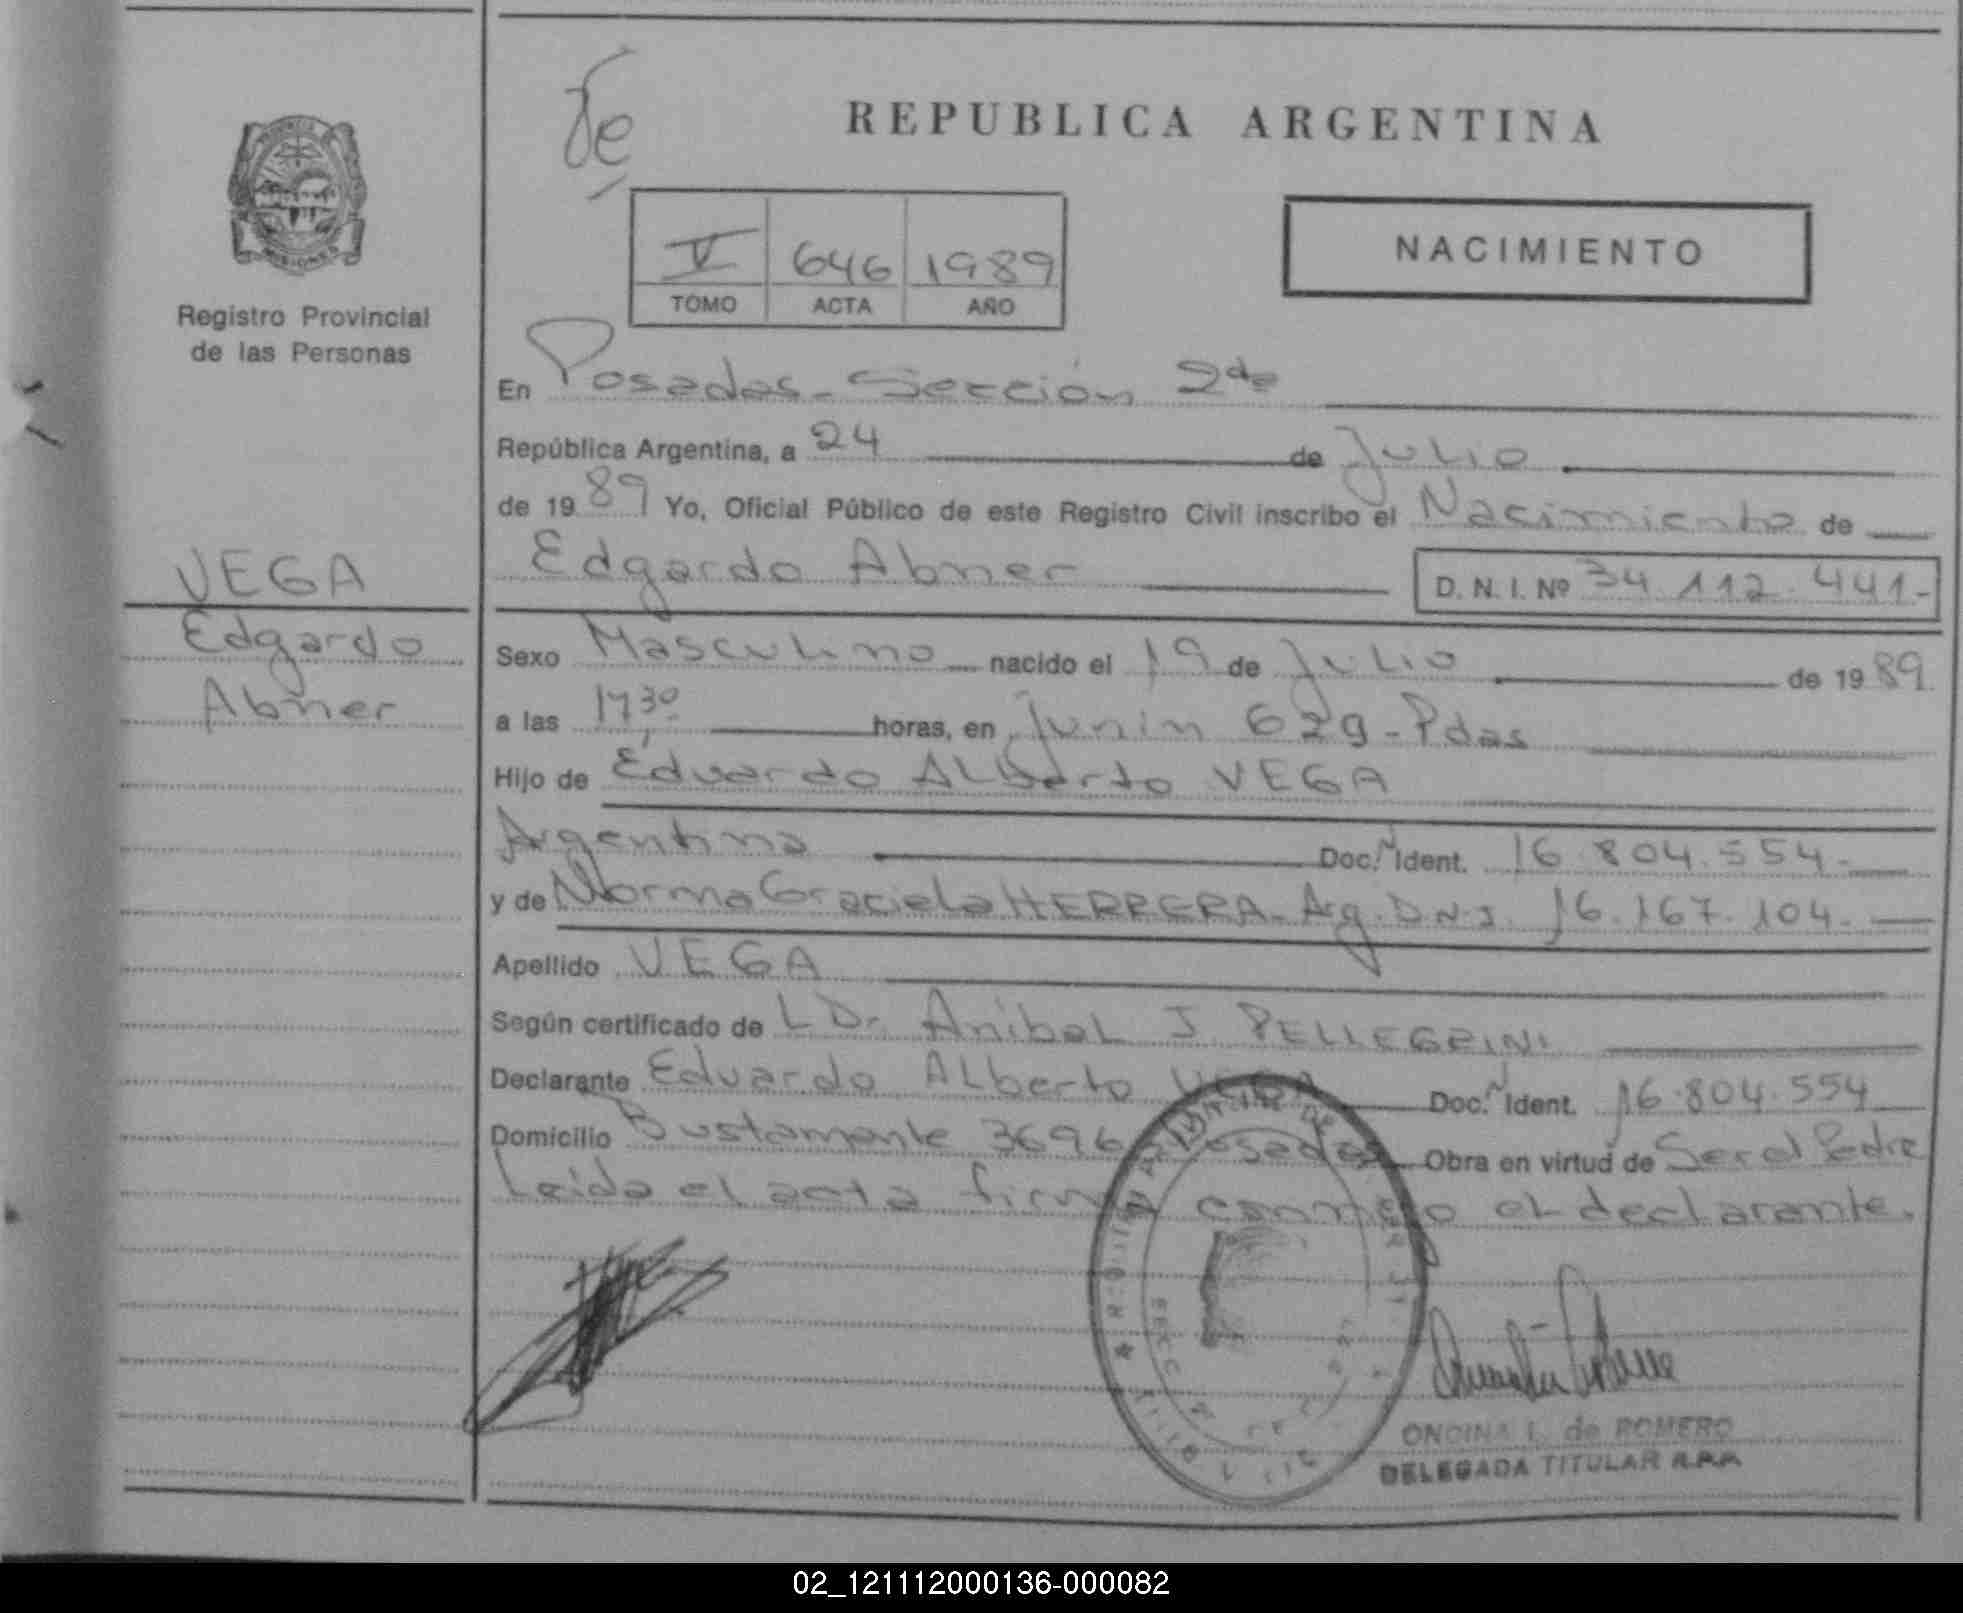 REPUBLICA ARGENTINA
V 646 1989
TOMO ACTA AÑO
NACIMIENTO
MISIONES
Registro Provincial
de las Personas
VEGA
Edgardo
Abner
En Posadas - Sección 2da
República Argentina, a 24 de Julio
de 1989 Yo, Oficial Público de este Registro Civil inscribo el Nacimiento de
Edgardo Abner D. N. I. Nº 34.112.441-
Sexo Masculino nacido el 19 de Julio de 1989
a las 17 30 horas, en Junín 629 - Pdas
Hijo de Eduardo Alberto VEGA
Argentina Doc. Ident. 16.804.554-
y de Norma Graciela HERRERA - Arg. D.N.I. 16.167.104-
Apellido VEGA
Según certificado de L Dr. Anibal J. PELLEGRINI
Declarante Eduardo Alberto VEGA Doc. Ident. 16.804.554
Domicilio Bustamante 3696 Posadas Obra en virtud de Ser el Padre
Leida el acta firma conmigo el declarante.
ONDINA L. de ROMERO
DELEGADA TITULAR R.P.P.
02_121112000136-000082